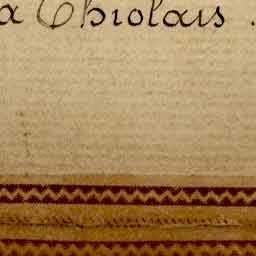 a Thiolais.